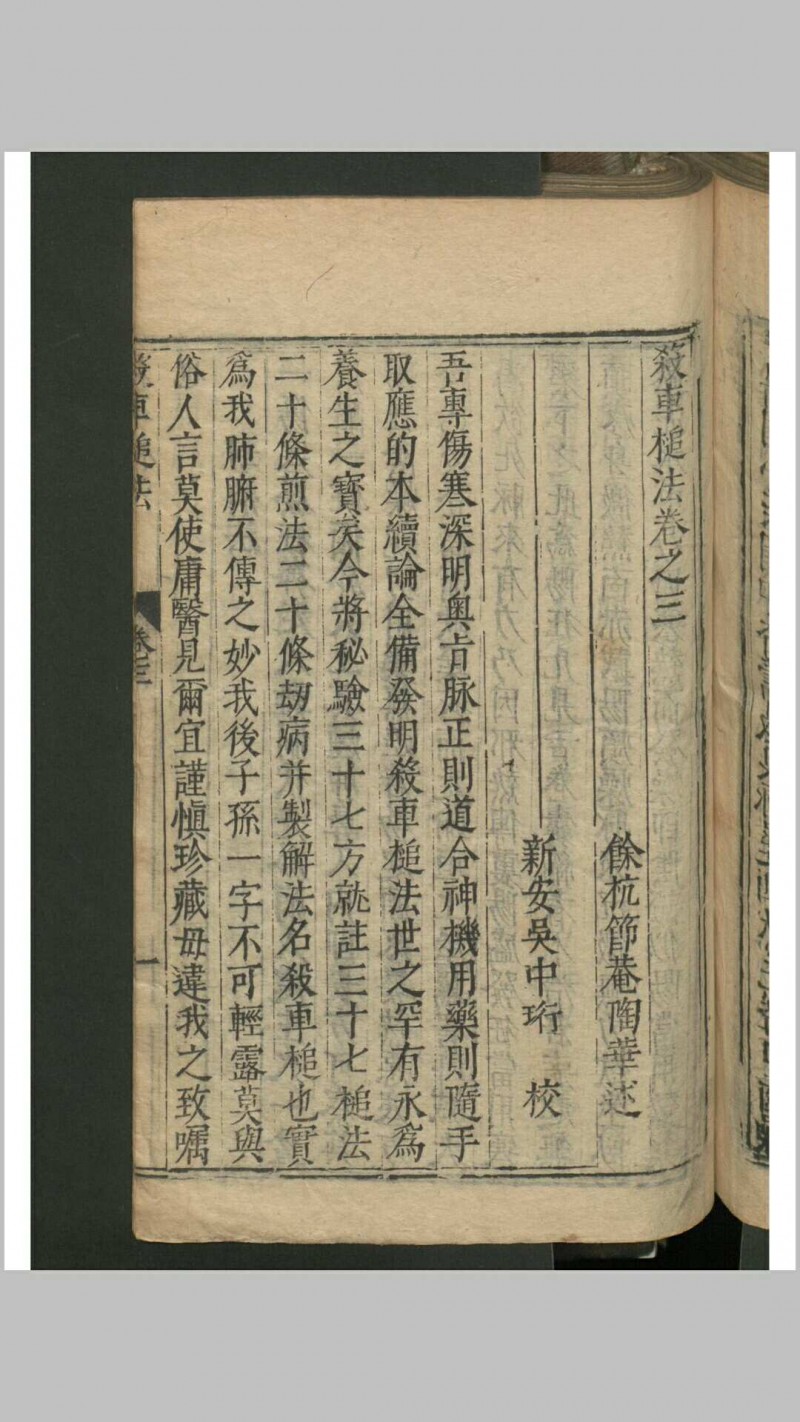 殺車槌法卷之三
餘杭節菴陶華述
新安吳中珩 校
吾專傷寒深明奧旨脉正則道合神機用藥則隨手
取應的本續論全備發明殺車槌法世之罕有永為
養生之寶矣今將秘驗三十七方就註三十七槌法
二十條煎法二十條劫病并製解法名殺車槌也實
為我肺腑不傳之妙我後子孫一字不可輕露莫與
俗人言莫使庸醫見爾宜謹慎珍藏毋違我之致囑
殺車槌法 卷三 一